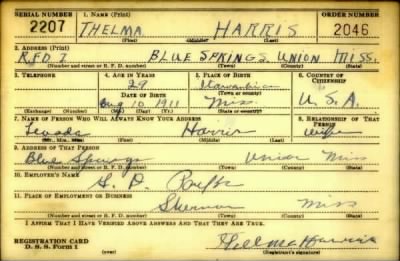 SERIAL NUMBER 1. NAME (Print) ORDER NUMBER
2207 THELMA HARRIS 2046
(First) (Middle) (Last)
2. ADDRESS (Print)
R.F.D. BLUE SPRINGS UNION MISS.
(Number and street or R. F. D. number) (Town) (County) (State)
3. TELEPHONE 4. AGE IN YEARS 5. PLACE OF BIRTH 6. COUNTRY OF CITIZENSHIP
29 Itawamba
DATE OF BIRTH (Town or county)
Aug 10 1911 Miss. U.S.A.
(Exchange) (Number) (Mo.) (Day) (Yr.) (State or country)
7. NAME OF PERSON WHO WILL ALWAYS KNOW YOUR ADDRESS 8. RELATIONSHIP OF THAT PERSON
Harris wife
(Mr., Mrs., Miss) (First) (Middle) (Last)
9. ADDRESS OF THAT PERSON
Blue Springs Union Miss
(Number and street or R. F. D. number) (Town) (County) (State)
10. EMPLOYER'S NAME
11. PLACE OF EMPLOYMENT OR BUSINESS
Sherman Miss
(Number and street or R. F. D. number) (Town) (County) (State)
I AFFIRM THAT I HAVE VERIFIED ABOVE ANSWERS AND THAT THEY ARE TRUE.
REGISTRATION CARD Thelma Harris
D. S. S. Form 1 (over) (Registrant's signature)